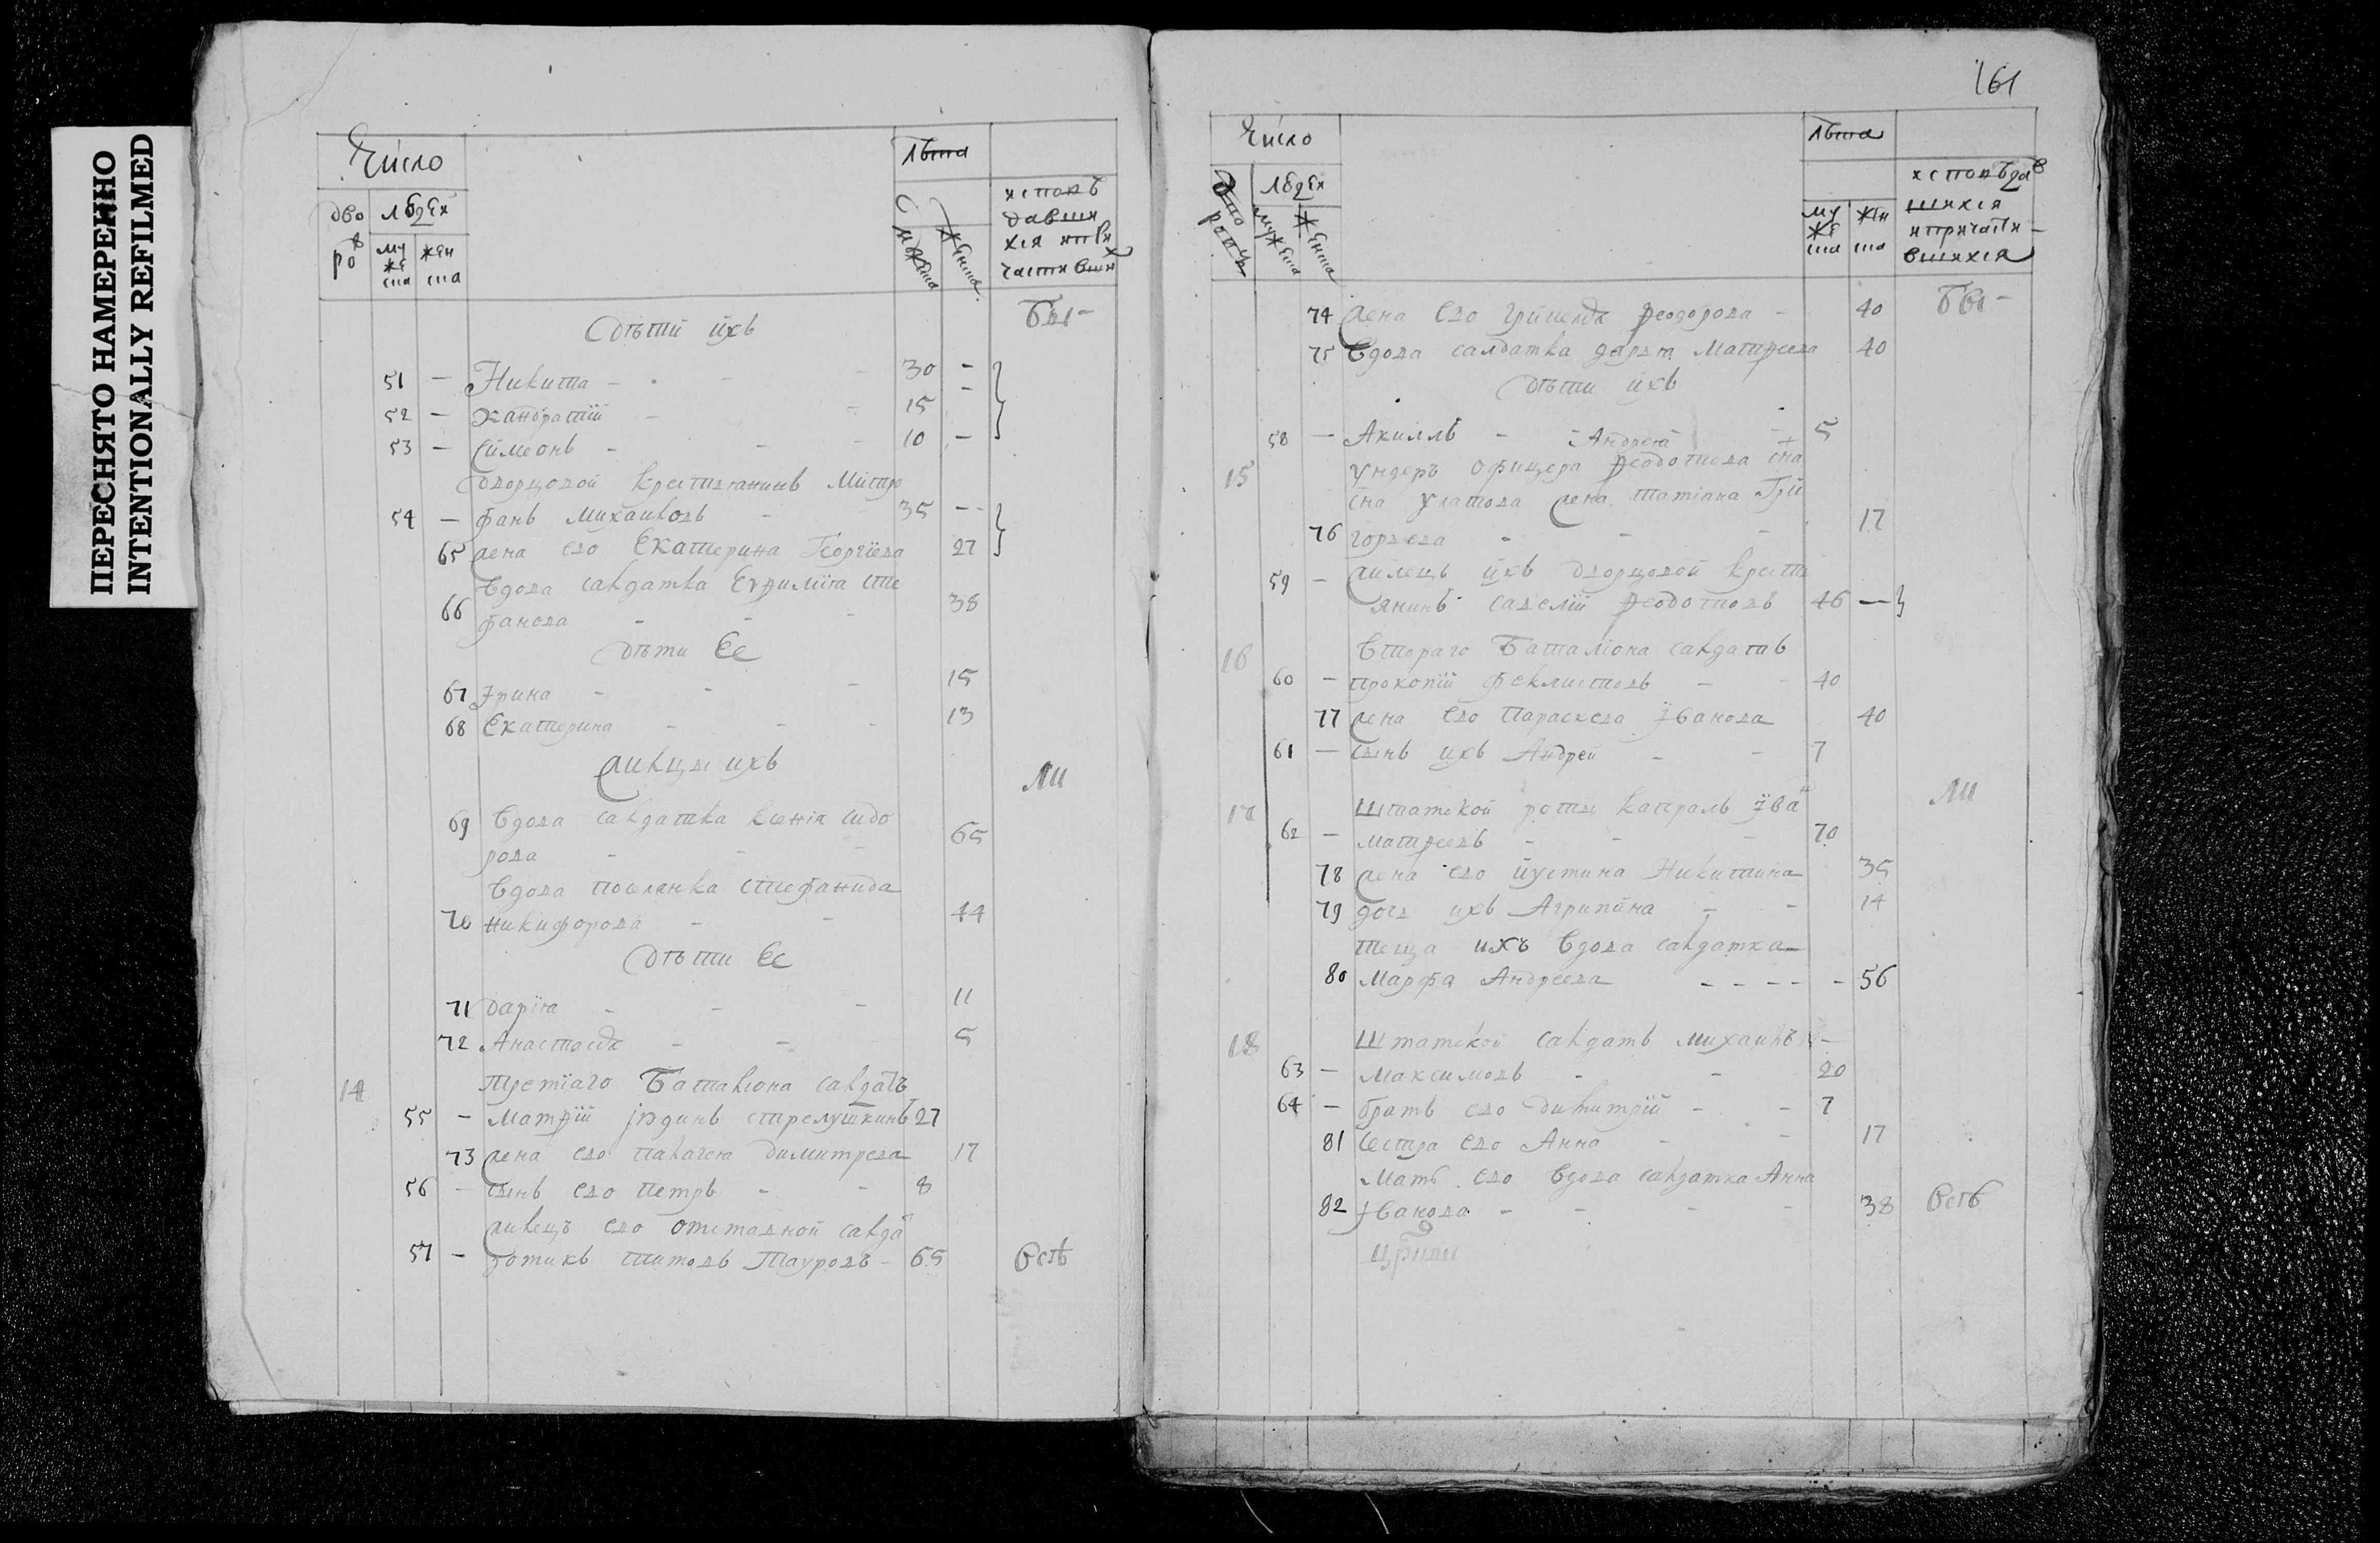 ПЕРЕСНЯТО НАМЕРЕННО
INTENTIONALLY REFILMED
Число
лѣта
дво
ровъ
людей
му
же
ска
жен
ска
мужеска
женска
исповѣ
давши
хся
Дѣти ихъ
Бы-
51 - Никита - - 30 -
52 - Кандратїй - - 15 -
53 - Сѵмеонъ - - 10 -
дворцовой крестьянинъ Митро
54 - фанъ Михаиловъ - 35 --
65 жена ево Екатерина Георгїева 27
вдова салдатка Евфимїя Сте
66 фанова - - - 38
Дѣти Ее
67 Ірина - - - 15
68 Екатерина - - - 13
жилцы ихъ
ли
69 вдова салдатка Ксенїя Сидо
рова - - - 65
вдова поселянка Стефанида
70 Никифорова - - 44
Дѣти Ее
71 Дарїя - - - 11
72 Анастасїя - - 5
14
Третїаго Баталиона салдатъ
55 - Матфїй Стрелушкинъ 27
73 жена ево Палагея Димитрева 17
56 - сынъ ево Петръ - - 8
жилецъ ево отставной салда
57 - Зотикъ Титовъ Тауровъ - 65
Всѣ
161
Число
лѣта
людей
мужеска
женска
му
же
ска
жен
ска
исповѣдав
шихся
и причасти-
вшихся
74 жена ево Феодорова - 40
Бы-
75 вдова салдатка Дарья Матфеева 40
Дѣти ихъ
58 - Ахиллъ - - Андрея - 5
15
ундеръ офицера Феодотова
жена Татїана Гри
76 горьева - - - 17
59 - жилецъ ихъ дворцовой крест
янинъ Савелїй Феодотовъ 46 -
16
втораго Баталїона салдатъ
60 - Прокопїй Феклистовъ - - 40
77 жена ево Параскева Їванова 40
61 - сынъ ихъ Андрей - - 7
ли
17
Штатской роты капралъ Їва
62 - Матфеевъ - - - 70
78 жена ево Иустина Никитина 35
79 дочь ихъ Агрипина - - 14
теща ихъ вдова салдатка
80 Марфа Андреева - - - - - 56
18
Штатской салдатъ Михаилъ -
63 - Максимовъ - - 20
64 - братъ ево Димитрїй - - 7
81 сестра ево Анна - - 17
мать ево вдова салдатка Анна
82 Їванова - - - - 38
Всѣ